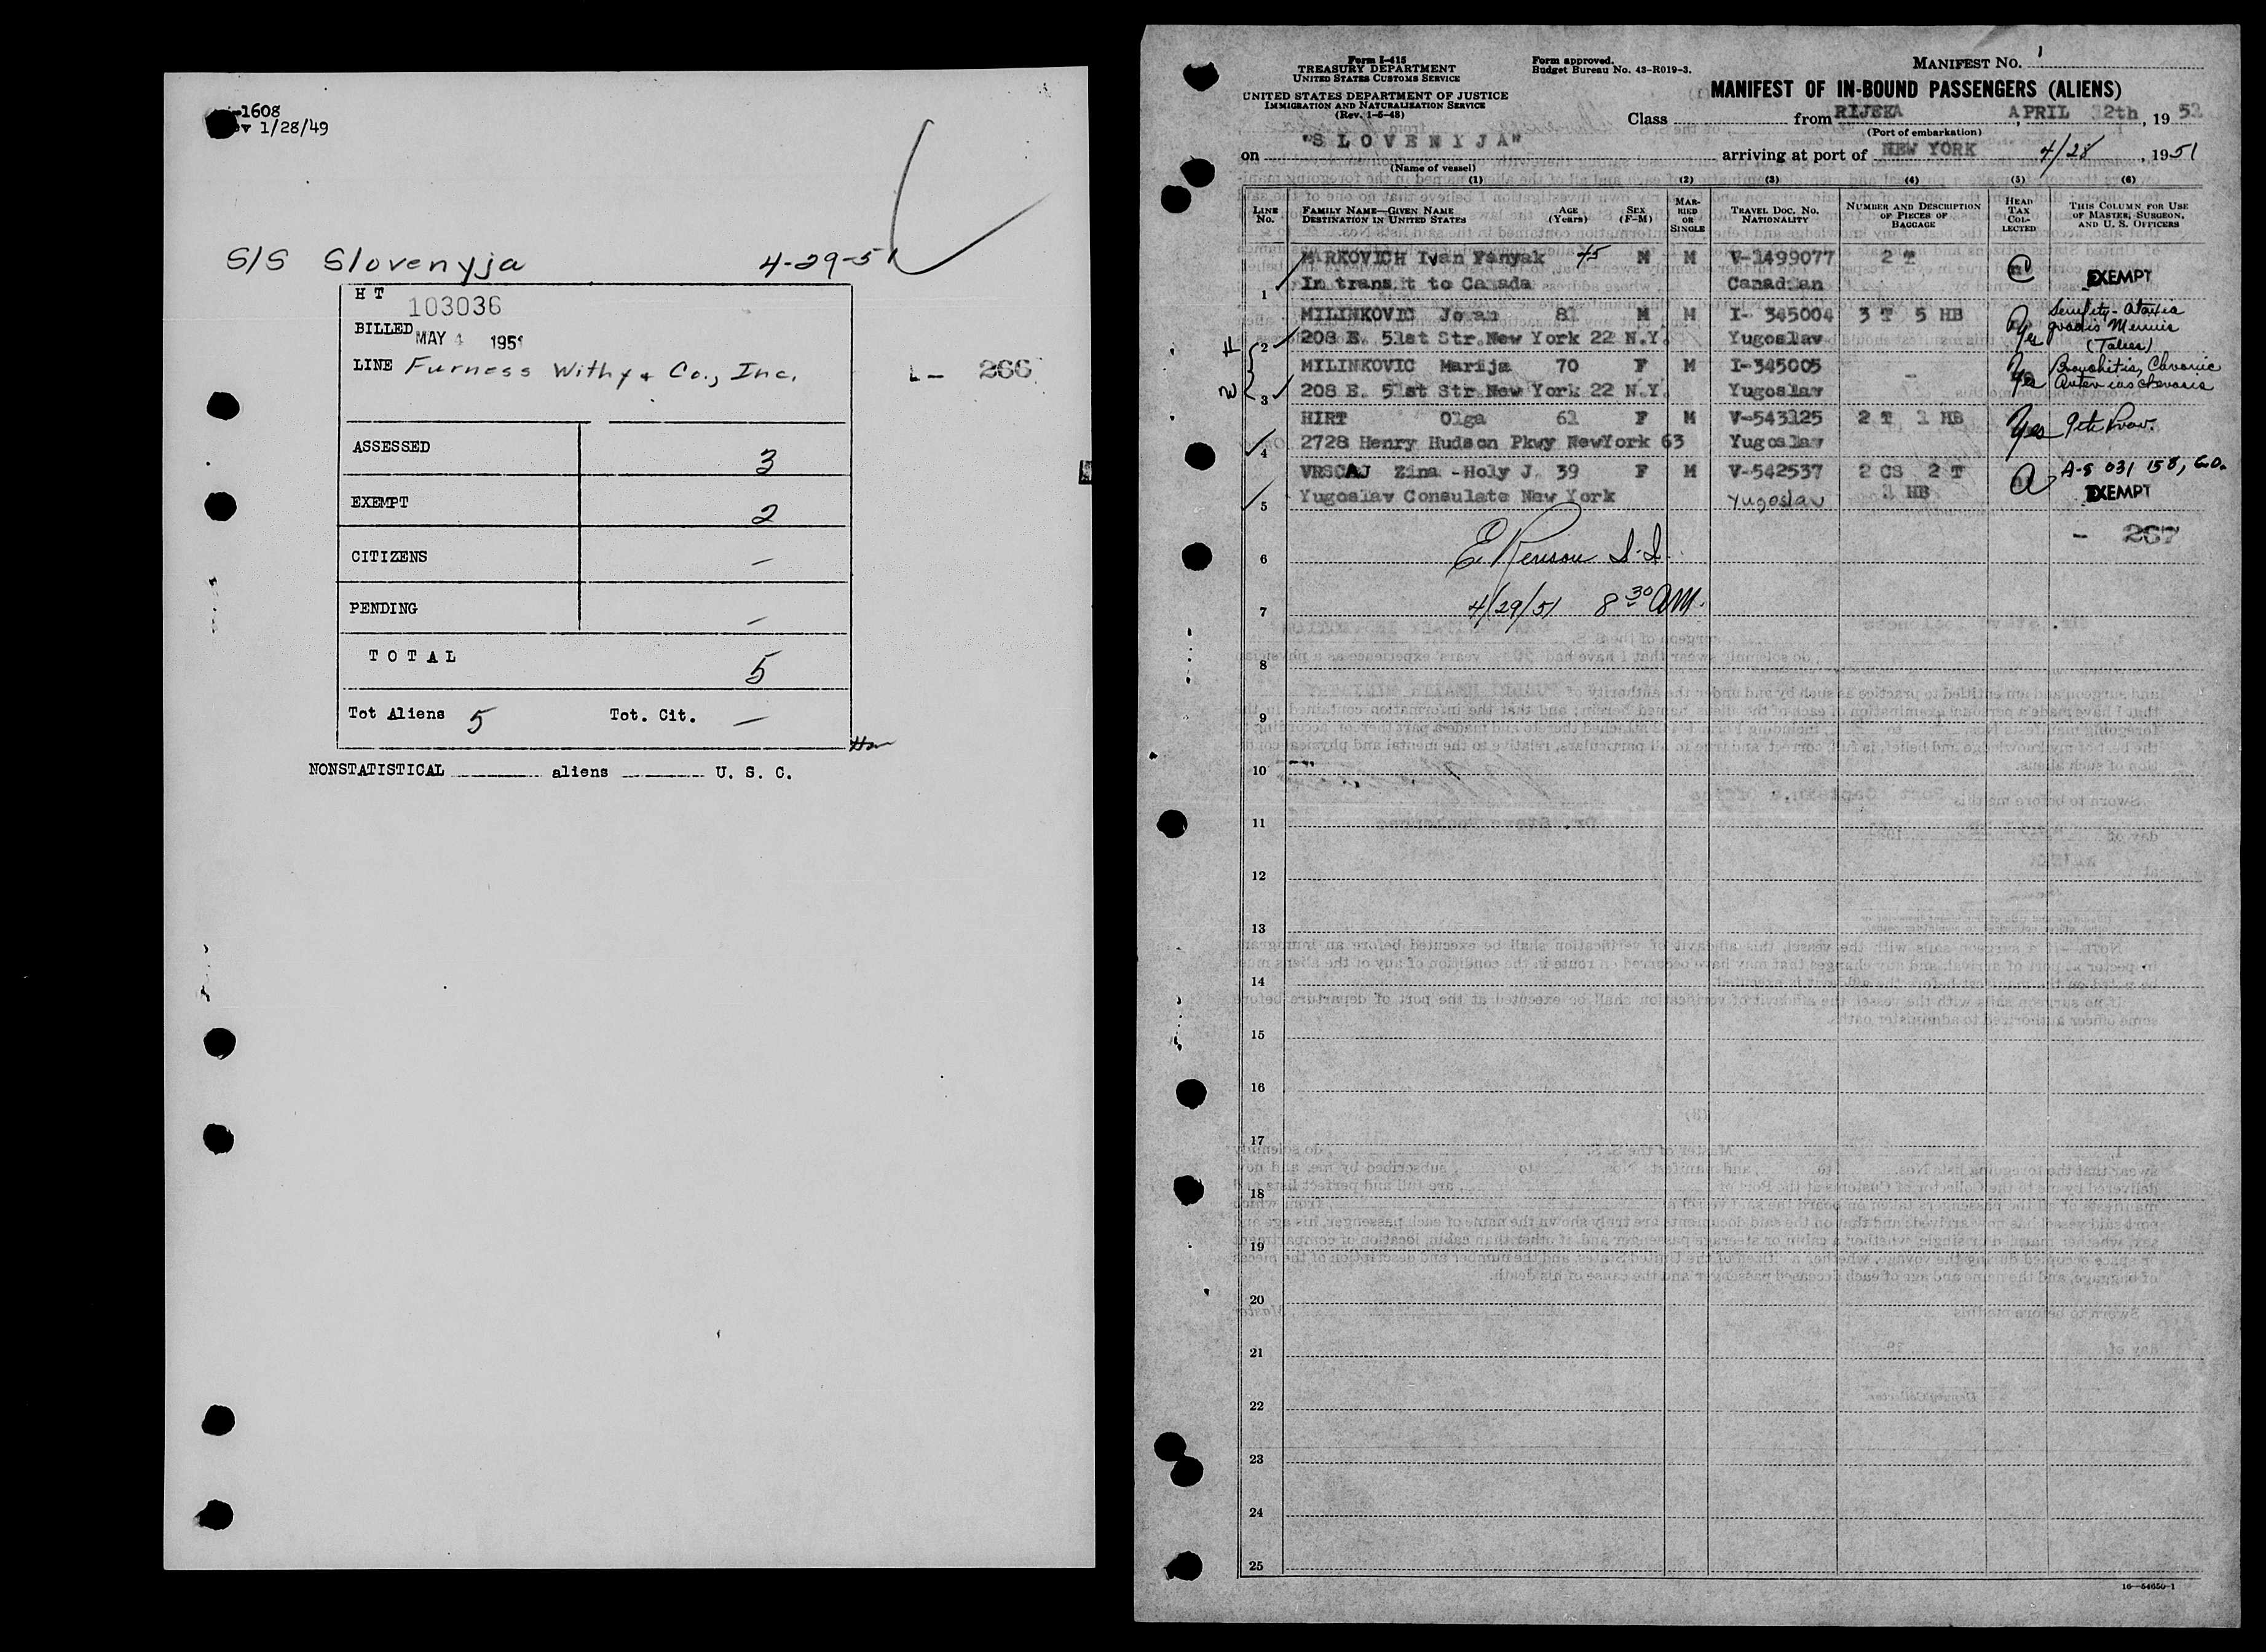 -1608
ev 1/28/49
S/S Slovenyja 4-29-51
HT 103036
BILLED MAY 4 1951
LINE Furness Withy & Co., Inc.
1- 266
ASSESSED 3
EXEMPT 2
CITIZENS —
PENDING —
TOTAL 5
Tot Aliens 5 Tot. Cit. —
NONSTATISTICAL aliens U. S. C.
Form I-415
TREASURY DEPARTMENT
UNITED STATES CUSTOMS SERVICE
UNITED STATES DEPARTMENT OF JUSTICE
IMMIGRATION AND NATURALIZATION SERVICE
(Rev. 1-6-48)
Form approved.
Budget Bureau No. 43-R019-3.
MANIFEST NO. 1
MANIFEST OF IN-BOUND PASSENGERS (ALIENS)
Class from RIJEKA, APRIL 12th, 19 51
(Port of embarkation)
on "SLOVENYJA" arriving at port of NEW YORK 4/28, 1951
(Name of vessel)
(1) (2) (3) (4) (5) (6)
LINE NO.
FAMILY NAME—GIVEN NAME
DESTINATION IN UNITED STATES
AGE (YEARS)
SEX (F-M)
MARRIED OR SINGLE
TRAVEL DOC. NO.
NATIONALITY
NUMBER AND DESCRIPTION OF PIECES OF BAGGAGE
HEAD TAX COLLECTED
THIS COLUMN FOR USE OF MASTER, SURGEON, AND U. S. OFFICERS
MARKOVICH Ivan Fanyak 45 M M V-1499077 2 T
1 In transit to Canada Canadian EXEMPT
MILINKOVIC Jovan 81 M M I- 345004 3 T 5 HB
2 208 E. 51st Str.New York 22 N.Y. Yugoslav yes
MILINKOVIC Marija 70 F M I-345005 - Bronchitis, Chronic
3 208 E. 51st Str New York 22 N.Y. Yugoslav yes
W F
HIRT Olga 61 F M V-543125 2 T 1 HB
4 2728 Henry Hudson Pkwy NewYork 63 Yugoslav yes
VRSCAJ Zina -Holy J. 39 F M V-542537 2 CS 2 T A-5 031 158,
5 Yugoslav Consulate New York Yugoslav 1 HB EXEMPT
- 267
6
7 4/29/51 8 30 AM.
8
9
10
11
12
13
14
15
16
17
18
19
20
21
22
23
24
25
16—54650-1